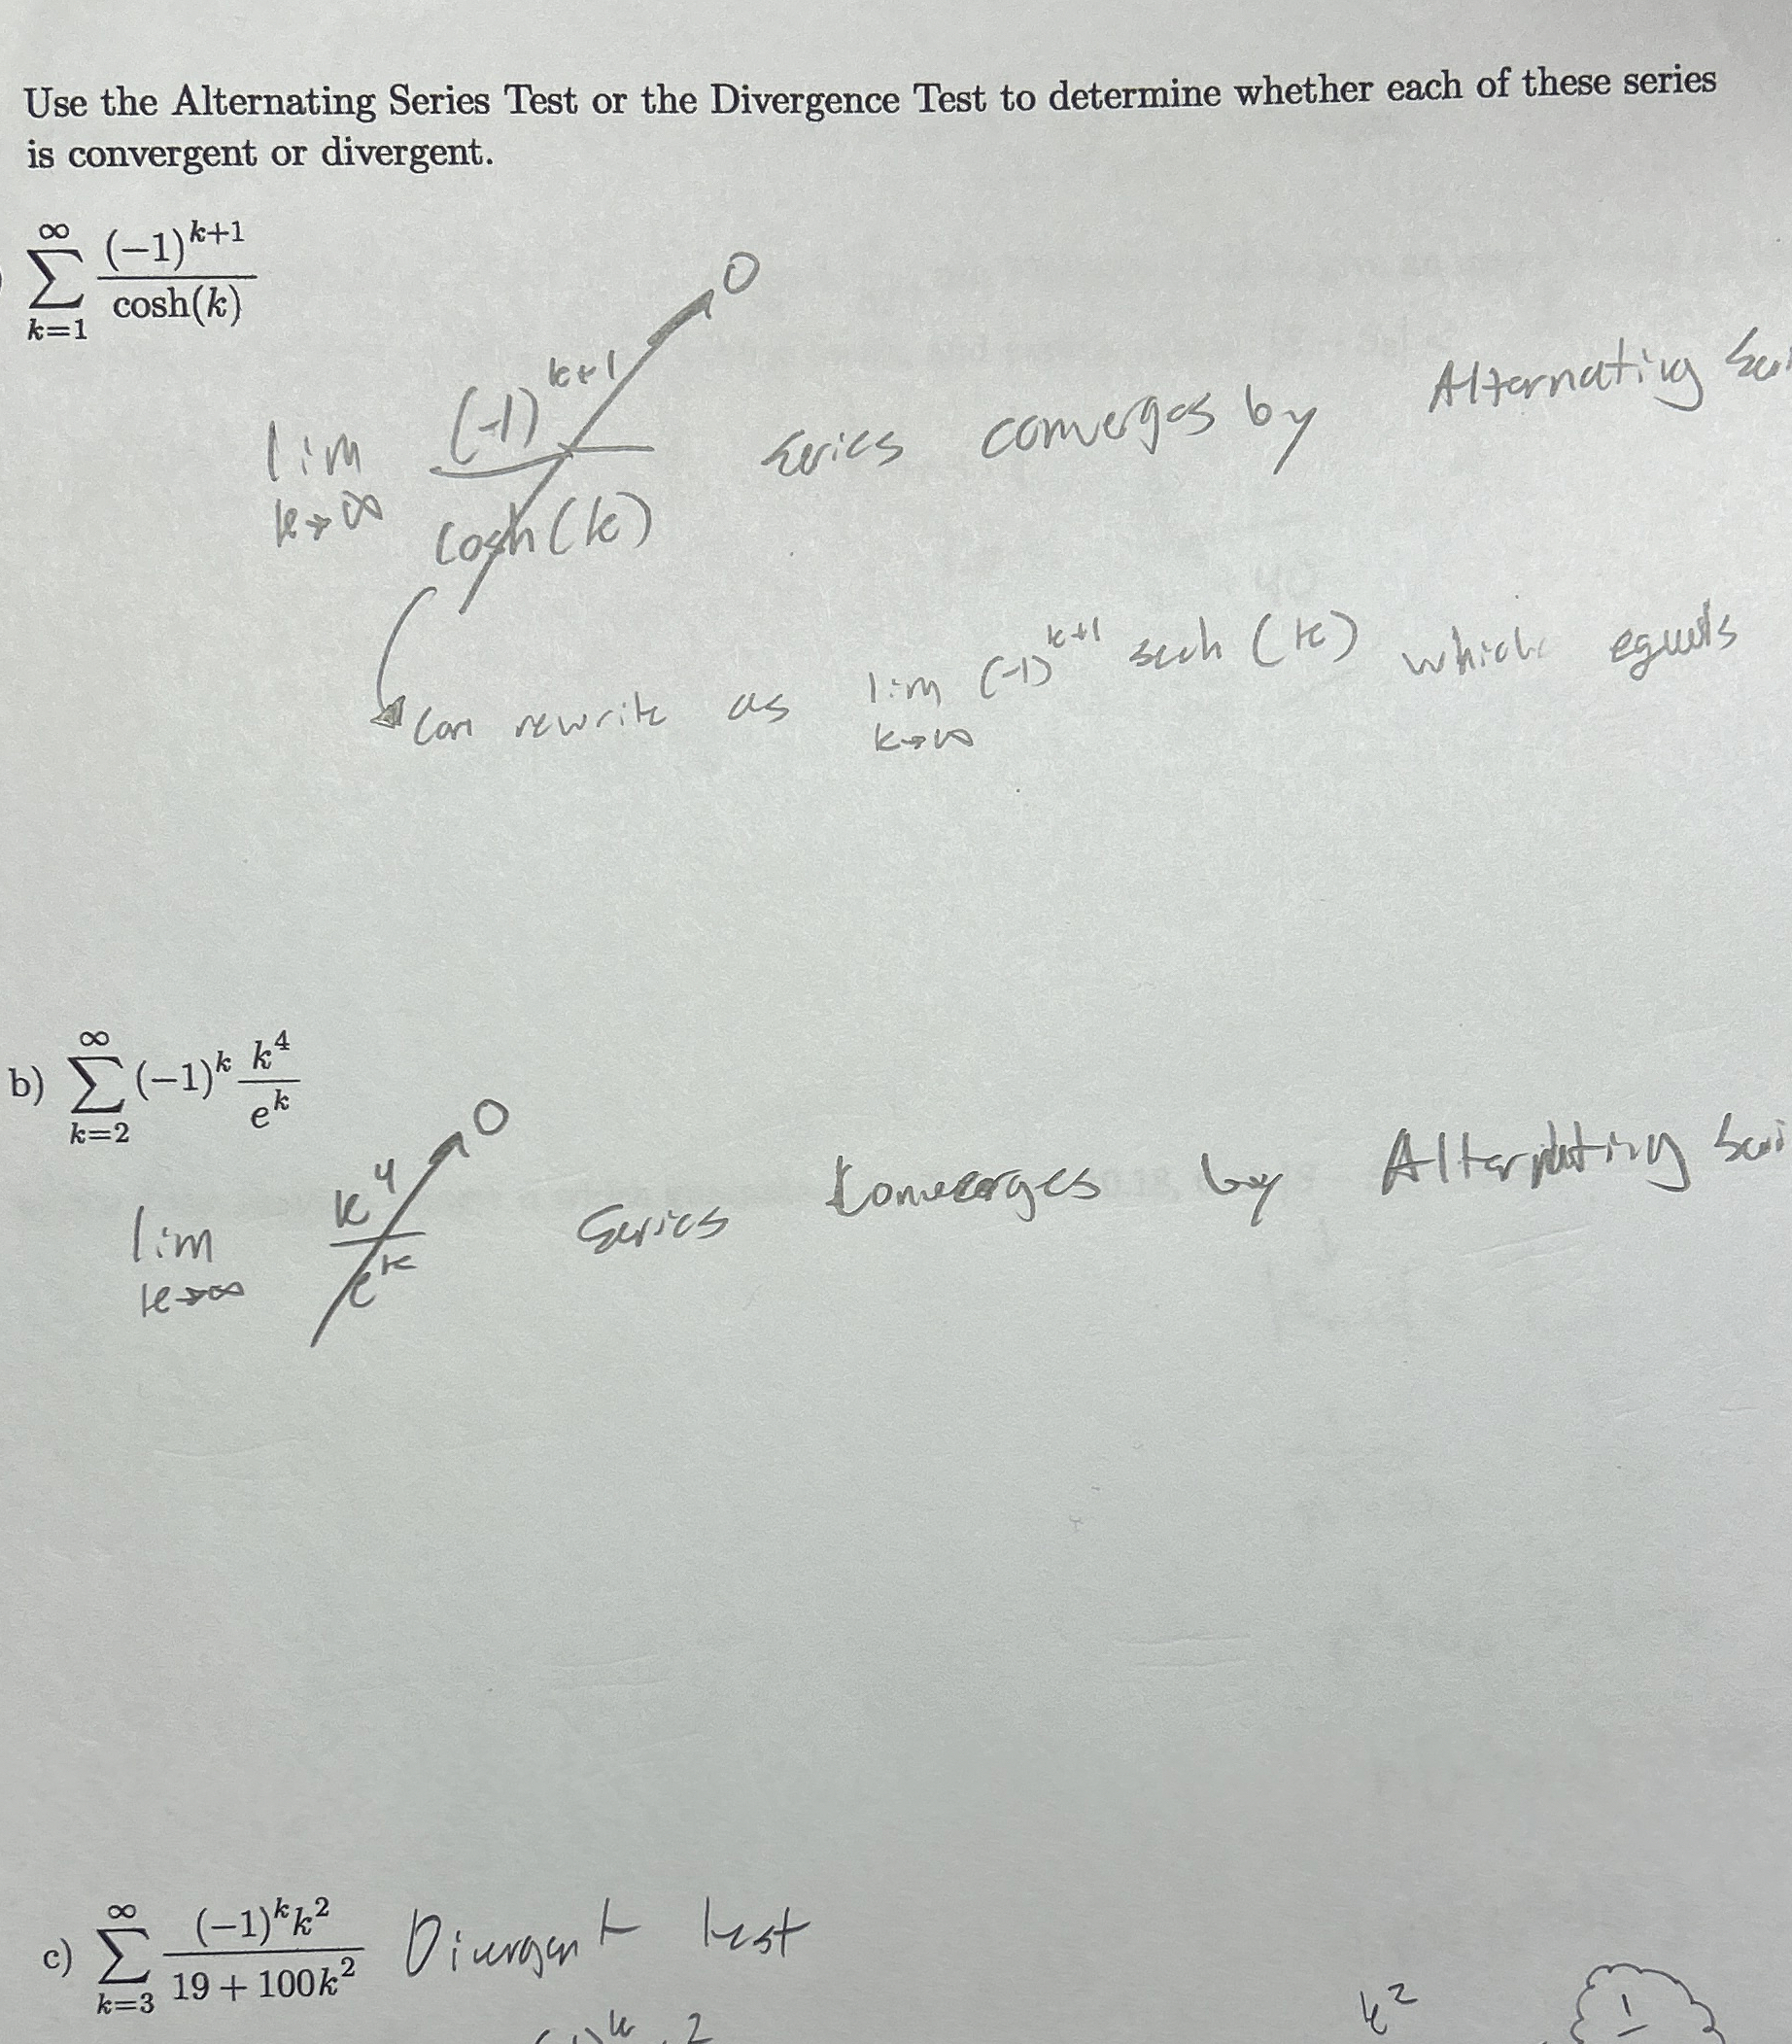 Use the Alternating Series Test or the Divergence Test to determine whether each of these series
is convergent or divergent.
∑_{k=1}^{∞} (-1)^{k+1} / cosh(k)
lim_{k→∞} (-1)^{k+1} / cosh(k) → 0 Series converges by Alternating
Can rewrite as lim_{k→∞} (-1)^{k+1} sech (k) which equals
b) ∑_{k=2}^{∞} (-1)^k k^4 / e^k
lim_{k→∞} k^4 / e^k → 0 Series Converges by Alternating
c) ∑_{k=3}^{∞} (-1)^k k^2 / (19 + 100k^2) Divergent test
k^2 1